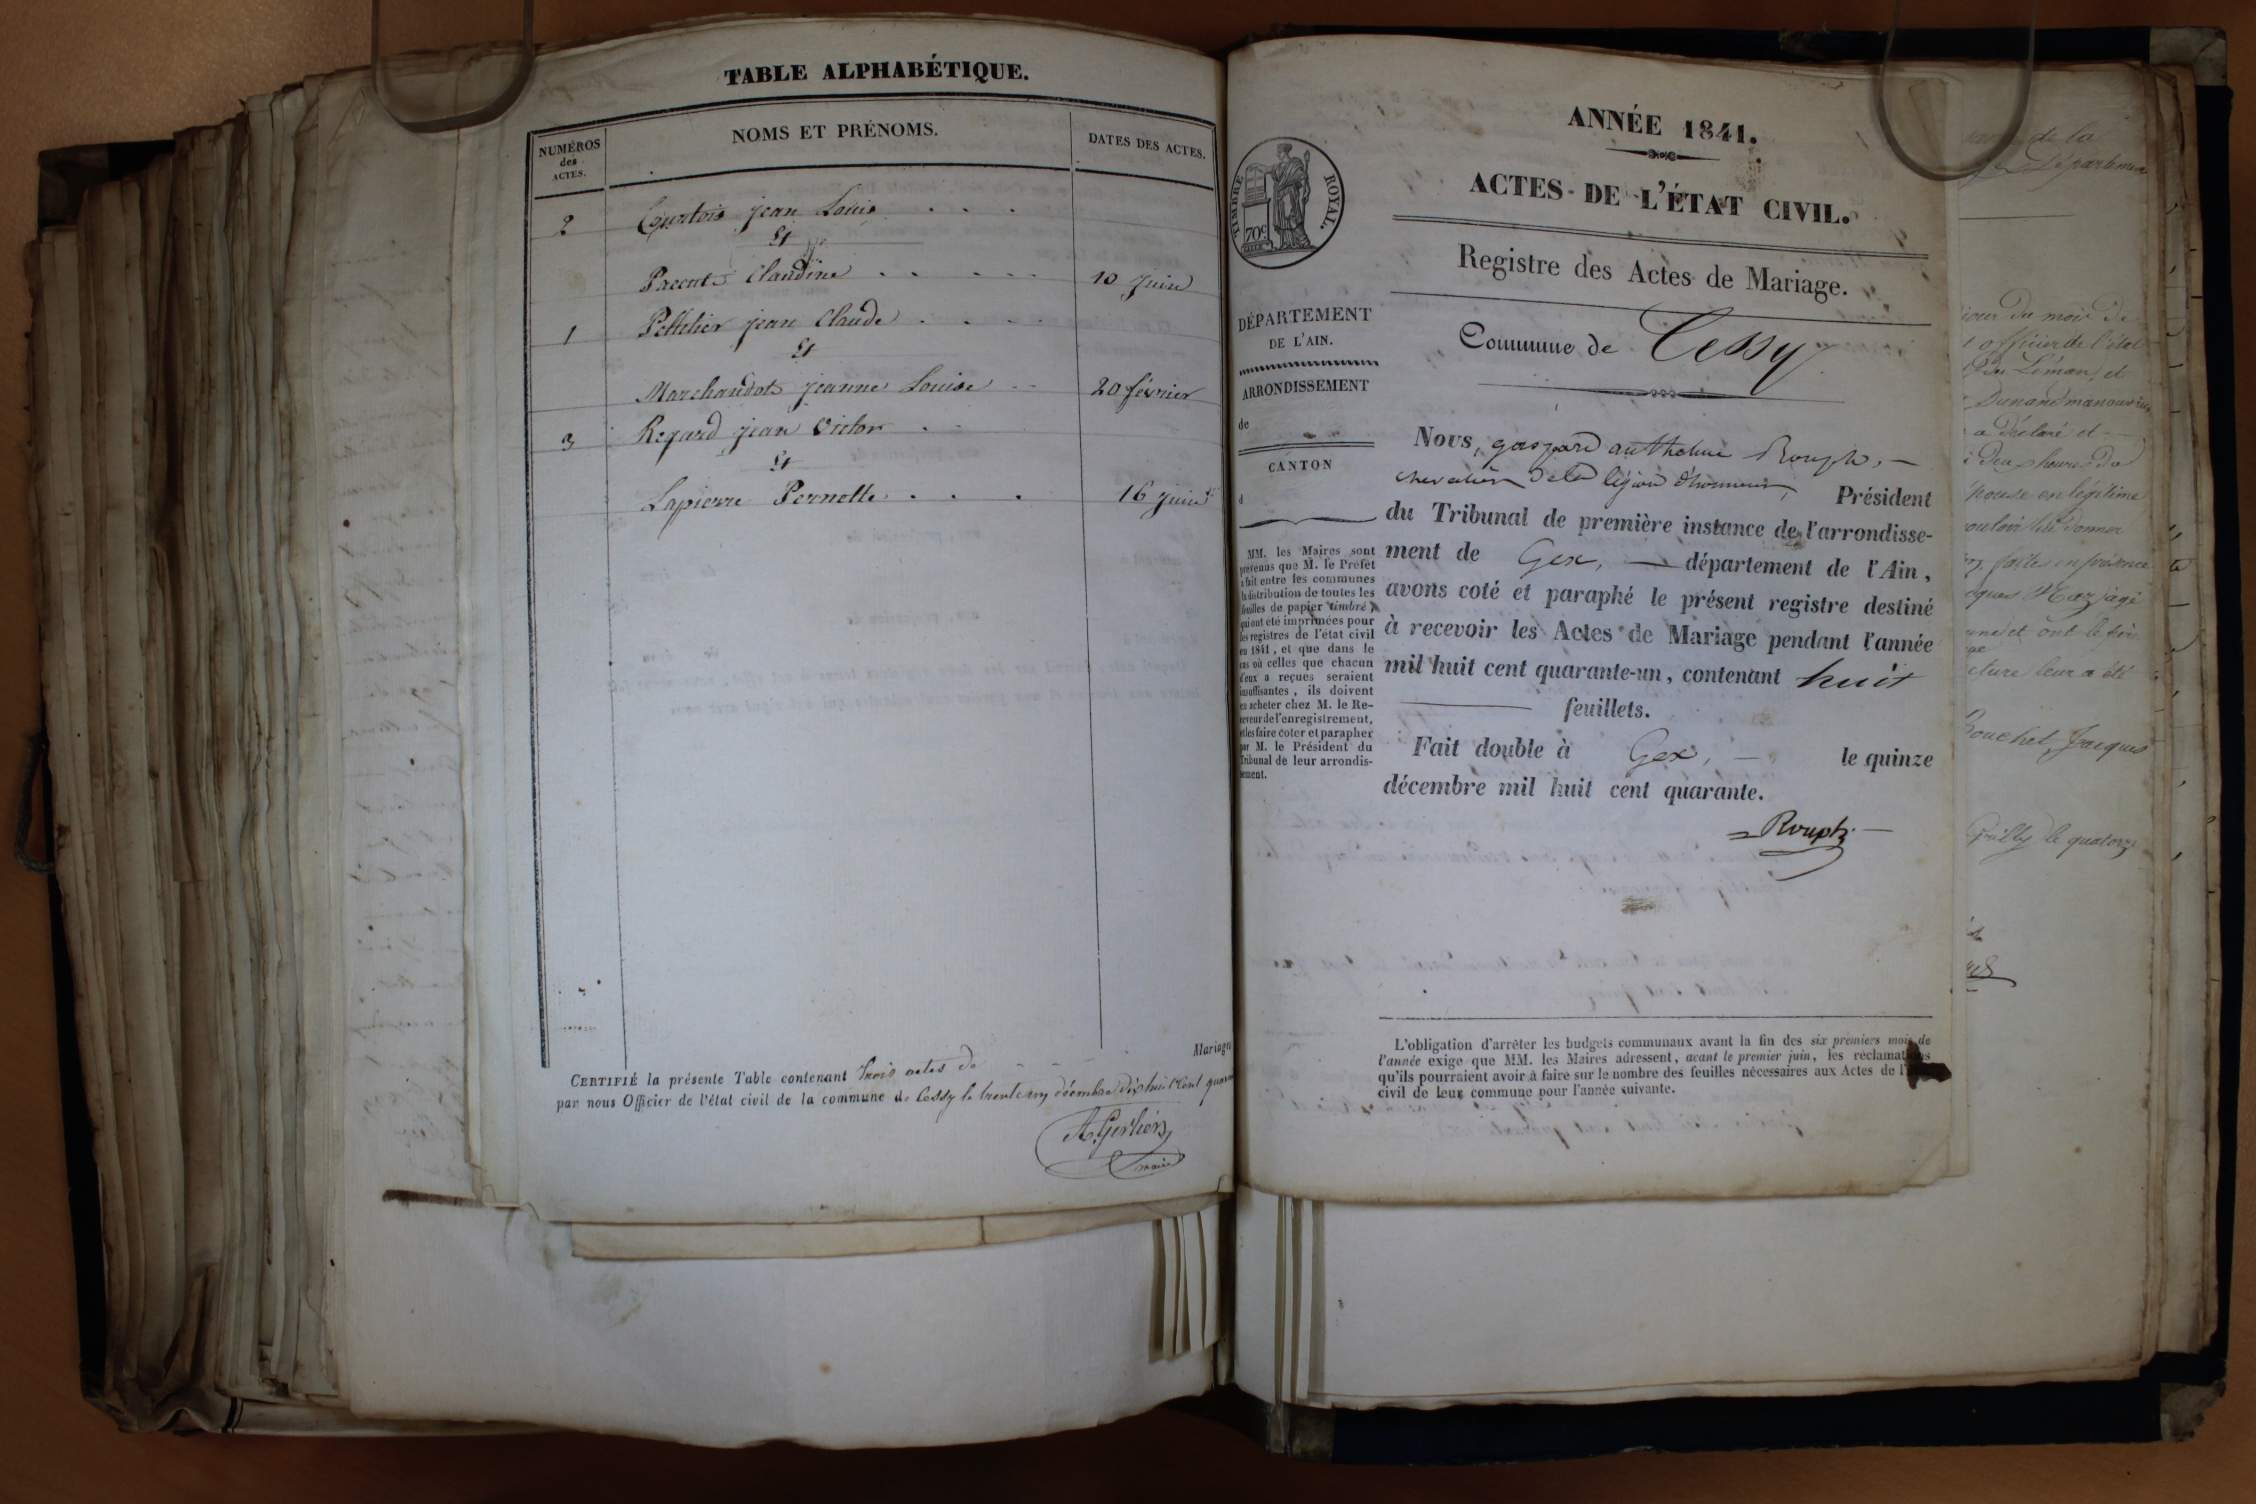 TABLE ALPHABÉTIQUE.
NUMÉROS
des
ACTES.
NOMS ET PRÉNOMS.
DATES DES ACTES.
2 Courtois jean Louis . . .
Et
Claudine . . . . . 10 Juin
1 Pelletier jean Claude . . . .
Et
Marchandot jeanne Louise -- 20 février
3 Regard jean Victor .
Et
Lapierre Pernette . . . 16 juin
Mariages
CERTIFIÉ la présente Table contenant trois actes de
par nous Officier de l'état civil de la commune de Cessy le trente un décembre dix huit Cent
maire
ANNÉE 1841.
ACTES DE L'ÉTAT CIVIL.
TIMBRE ROYAL.
70c
Registre des Actes de Mariage.
Commune de Cessy
DÉPARTEMENT
DE L'AIN.
ARRONDISSEMENT
de
CANTON
d
MM. les Maires sont
prévenus que M. le Préfet
a fait entre les communes
la distribution de toutes les
feuilles de papier timbré
qui ont été imprimées pour
les registres de l'état civil
en 1841, et que dans le
cas où celles que chacun
d'eux a reçues seraient
insuffisantes, ils doivent
en acheter chez M. le Re-
ceveur de l'enregistrement,
et les faire coter et parapher
par M. le Président du
Tribunal de leur arrondis-
sement.
Nous, gaspard anthelme Rouph, —
chevalier de la légion d'honneur, Président
du Tribunal de première instance de l'arrondisse-
ment de Gex, — département de l'Ain,
avons coté et paraphé le présent registre destiné
à recevoir les Actes de Mariage pendant l'année
mil huit cent quarante-un, contenant huit
feuillets.
Fait double à Gex, — le quinze
décembre mil huit cent quarante.
Rouph
L'obligation d'arrêter les budgets communaux avant la fin des six premiers mois de
l'année exige que MM. les Maires adressent, avant le premier juin, les réclamations
qu'ils pourraient avoir à faire sur le nombre des feuilles nécessaires aux Actes de
civil de leur commune pour l'année suivante.
de la
jour du mois de
officier de l'état
du Léman, et
a déclaré et
heures du
épouse en légitime
donner
faite en présence
et ont le
cture leur a été
Bouchet, Jacques
le quatorze